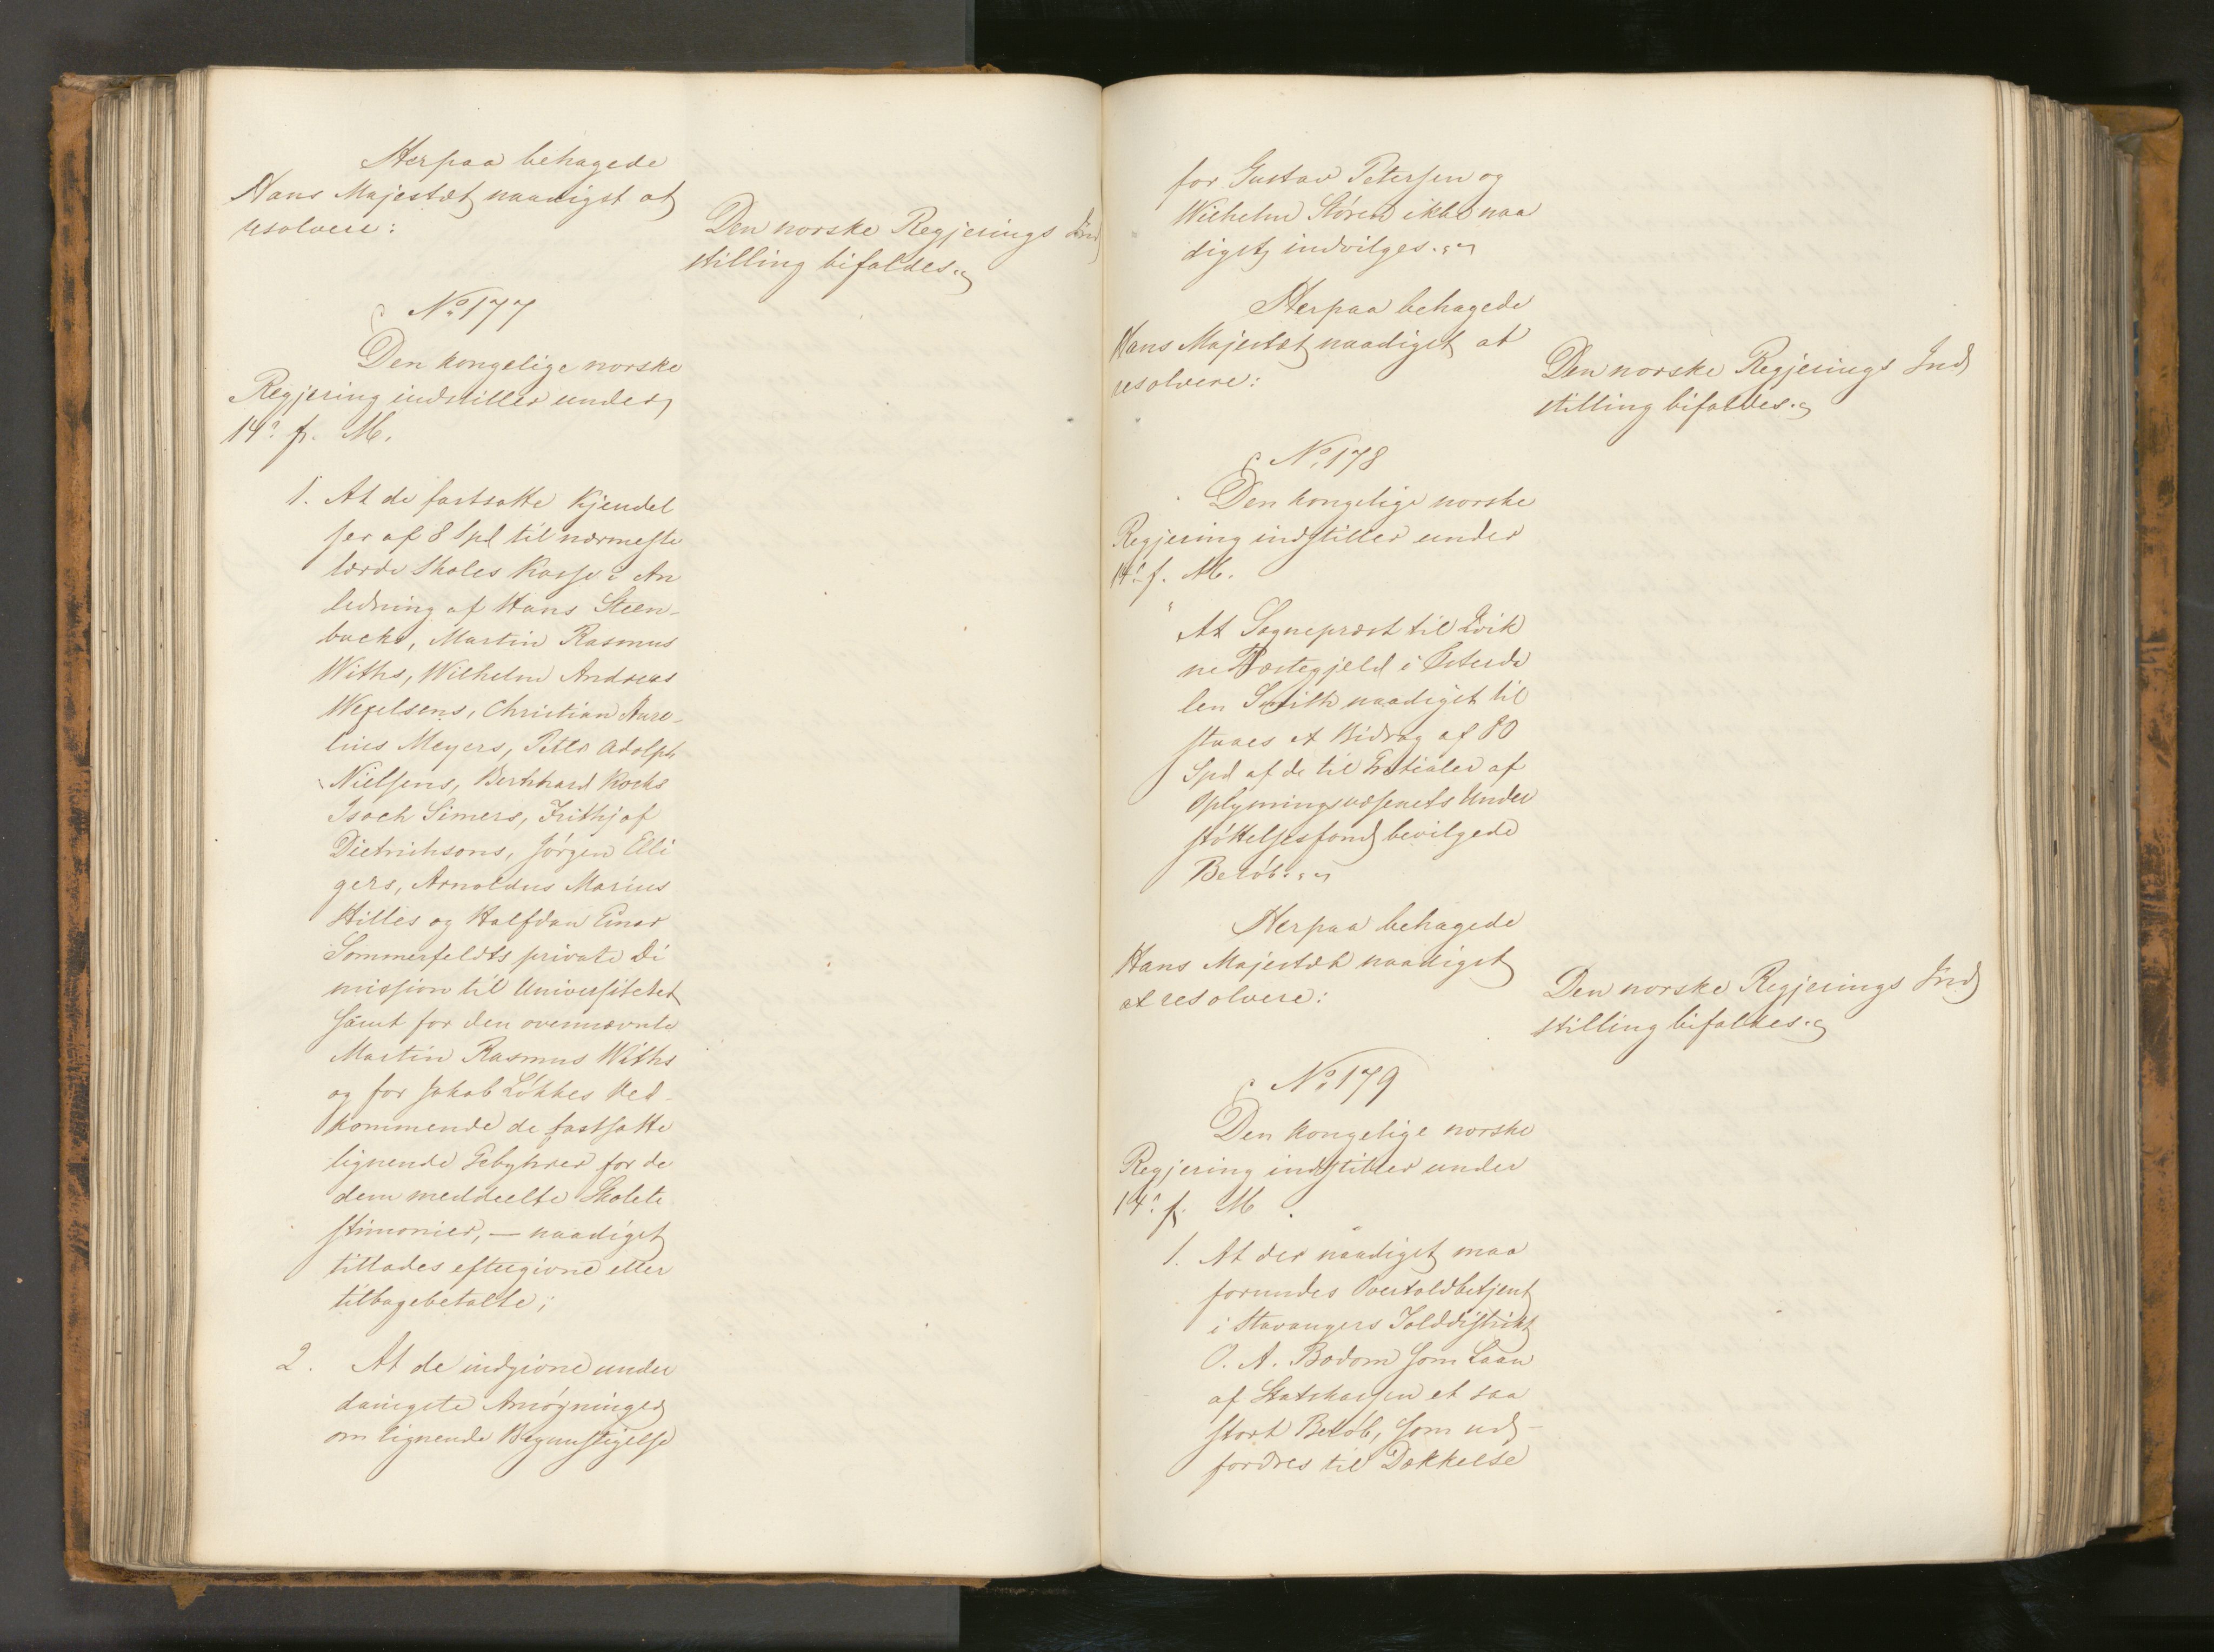 Herpaa behagede
Hans Majestæt naadigst at
resolvere:
Den norske Regjerings Ind
stilling bifaldes.
No 177
Den kongelige norske
Regjering indstiller under
14. f. M.
1. At de fastsatte Kjendel
ser af 8 Spd til nærmeste
lærde Skoles Kasse i An
ledning af Hans Steen-
bucks, Martin Rasmus
Withs, Wilhelm Andreas
Wexelsens, Christian Aure-
lius Meyers, Petter Adolph
Nielsens, Bernhard Kochs
Isach Simers, Frithjof
Dietrichsons, Jörgen Elli
gers, Arnoldus Marius
Hilles og Halfdan Einar
Sommerfeldts private Di
mission til Universitetet
samt for den ovennævnte
Martin Rasmus Withs
og for Jakob Løkkes Ved-
kommende de fastsatte
lignende Gebyhrer for de
dem meddeelte Skolete
stimonier, — naadigst
tillades eftergivne eller
tilbagebetalte;
2. At de indgivne under
danigste Ansøgninger
om lignende Begunstigelse
for Gustav Petersen og
Wilhelm Støren ikke naa
digst indvilges.
Herpaa behagede
Hans Majestæt naadigst at
resolvere:
Den norske Regjerings Ind
stilling bifaldes.
No. 178
Den kongelige norske
Regjering indstiller under
14. f. M.
At Sognepræst til Qvik
ne Præstegjeld i Østerda
len Smith naadigst til
staaes et Bidrag af 80
Spd af de til Enkialer af
Oplysningsvæsenets Under
støttelsesfond bevilgede
Beløb.
Herpaa behagede
Hans Majestæt naadigst
at resolvere:
Den norske Regjerings Ind
stilling bifaldes.
No. 179
Den kongelige norske
Regjering indstiller under
14. f. M.
1. At der naadigst maa
forundes Overtoldbetjent
i Stavangers Tolddistrikt
O. A. Bodom som Laan
af Statskassen et saa
stort Beløb, som ud-
fordres til Dækkelse